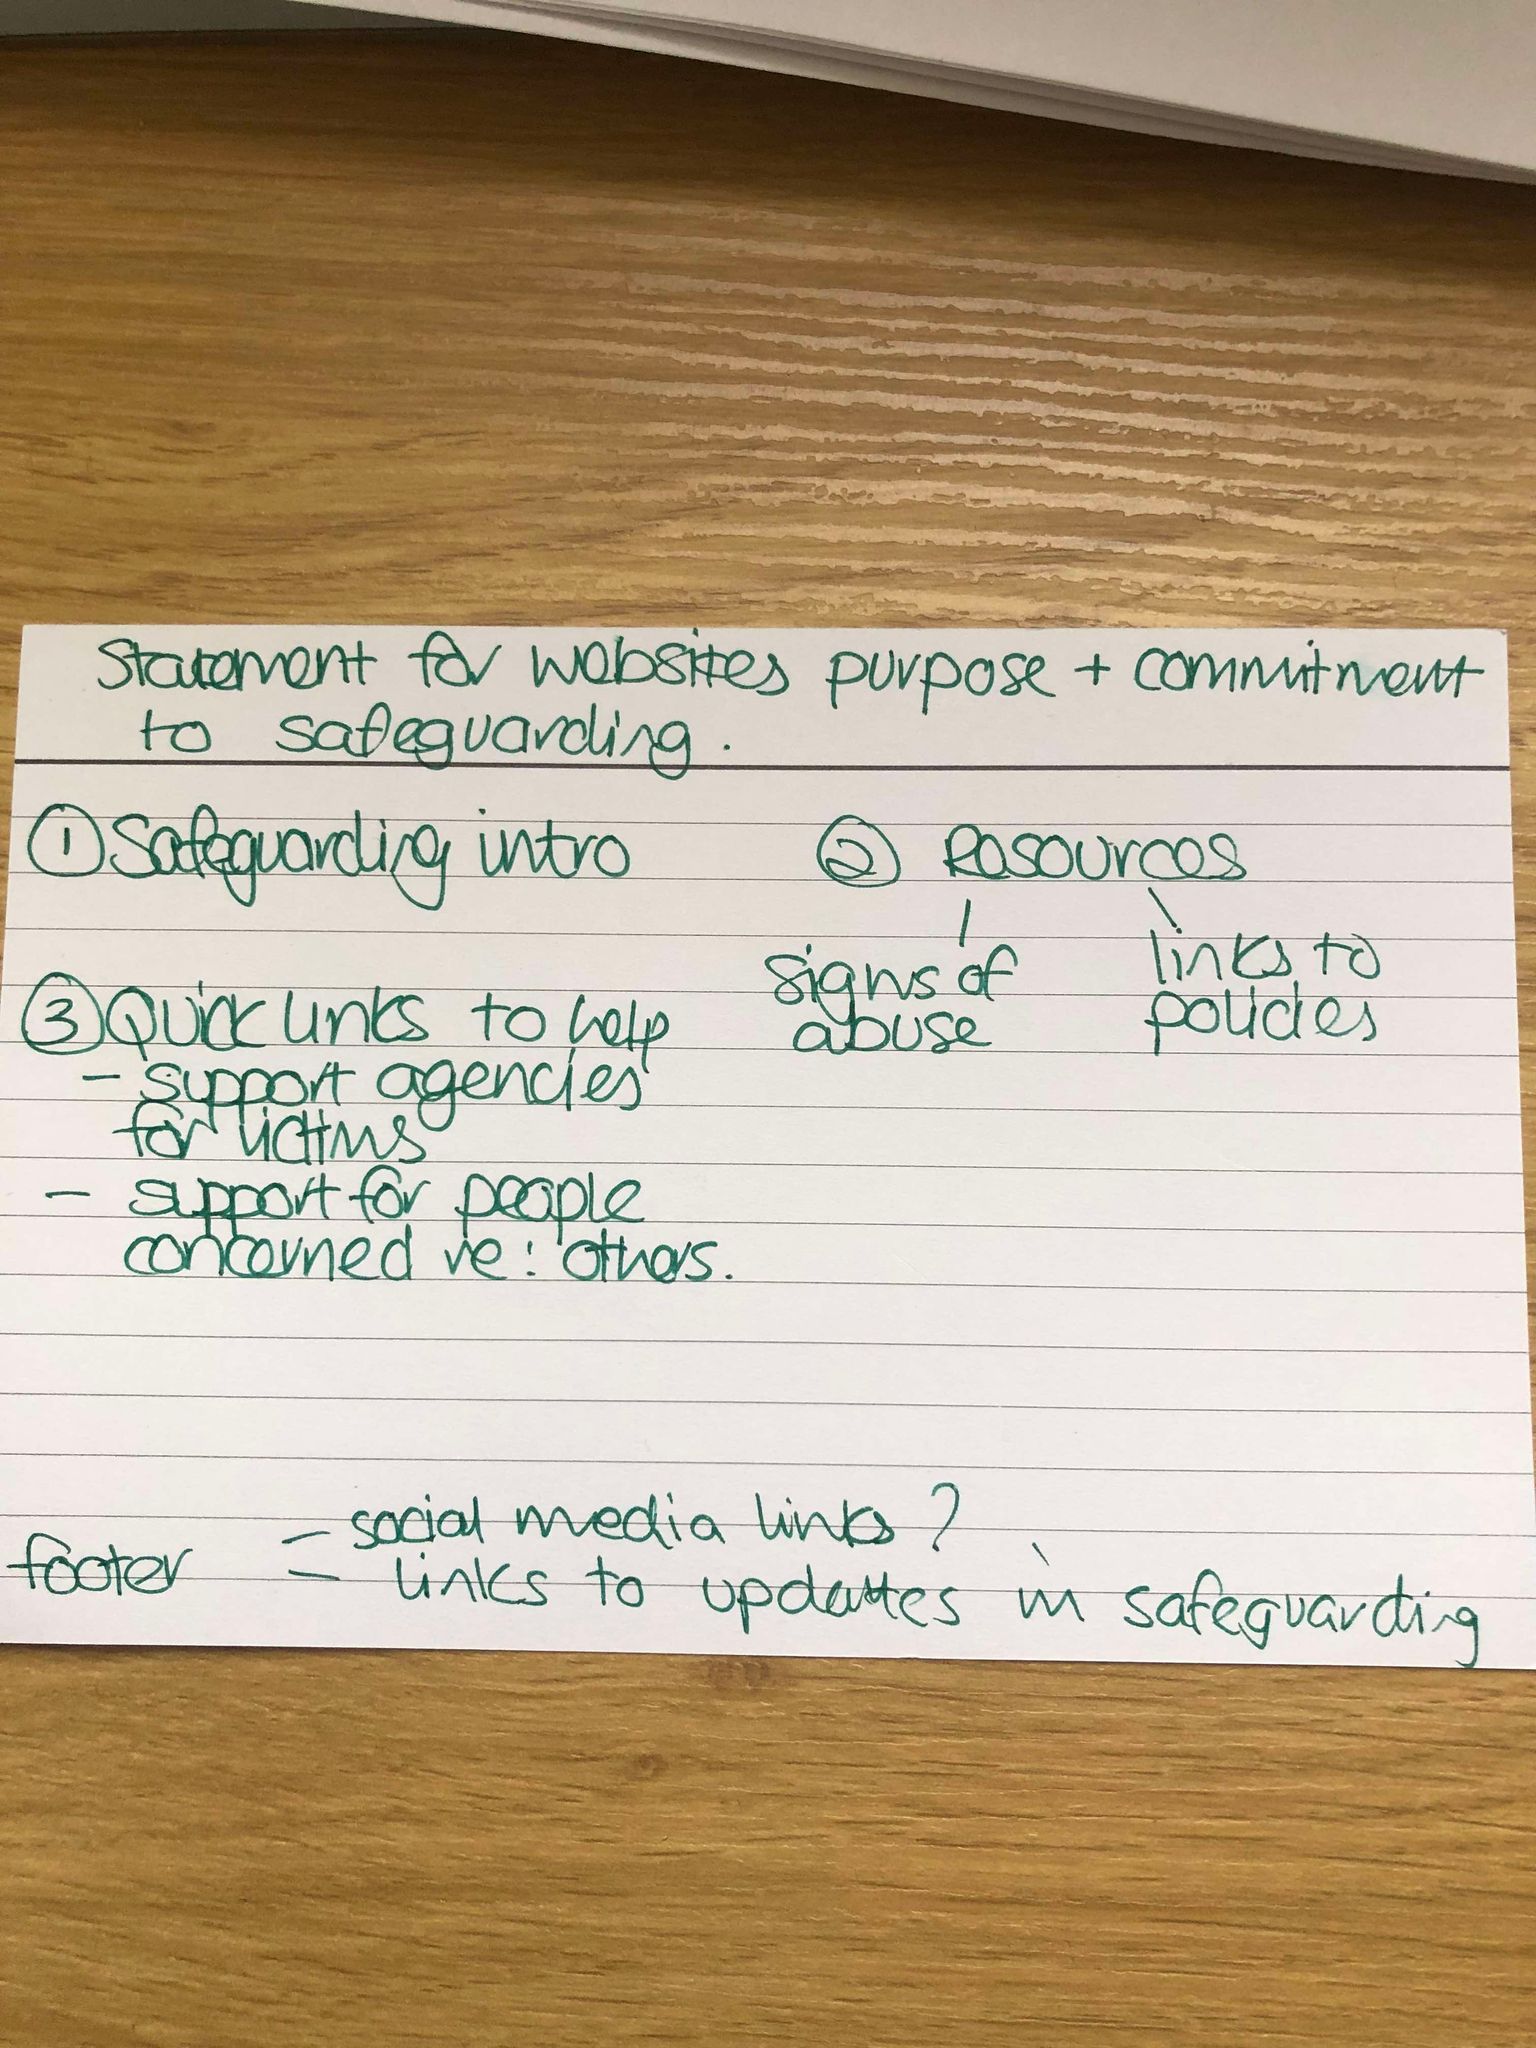 Statement for websites purpose + commitment
to safeguarding.
① Safeguarding intro
② Resources
signs of
abuse
links to
policies
③ Quick links to help
- support agencies
for victims
- support for people
concerned re: others.
footer
- social media links?
- links to updates in safeguarding